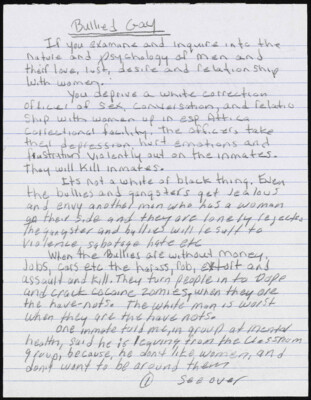 Bullied Gay
If you examine and inquire into the
nature and psychology of men and
their love, lust, desire and relationship
with women.
You deprive a white correction
officer of sex, conversation, and relatio
ship with women up in esp Attica
correctional facility. The officers take
their depression, hurt emotions and
frustration violently out on the inmates.
They will kill inmates.
Its not a white or black thing. Even
the bullies and gangsters get jealous
and envy another man who has a woman
on their side and they are lonely rejected
The gangster and bullies will resort to
violence, sabotage hate etc
When the Bullies are without money,
Jobs, cars etc the harass, rob, extort and
assault and kill. They turn people in to Dope
and crack cocaine zomies, when they are
the have nots. The white man is worst
when they are the have nots.
One inmate told me, in group at mental
health, said he is leaving from the classroom
group, because, he don't like women, and
don't want to be around them
1 see over